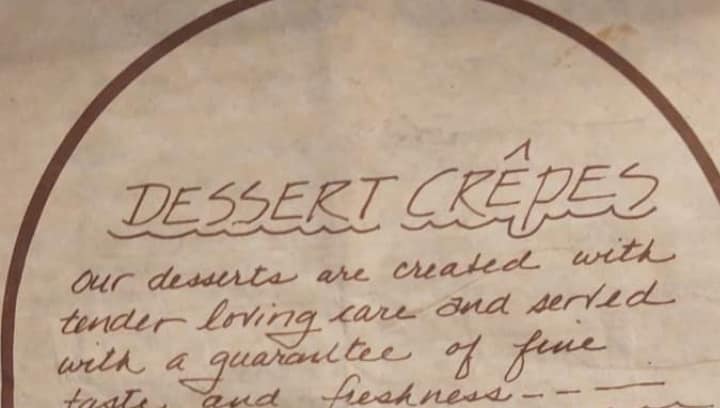 DESSERT CRÊPES
our desserts are created with
tender loving care and served
with a guarantee of fine
taste and freshness----